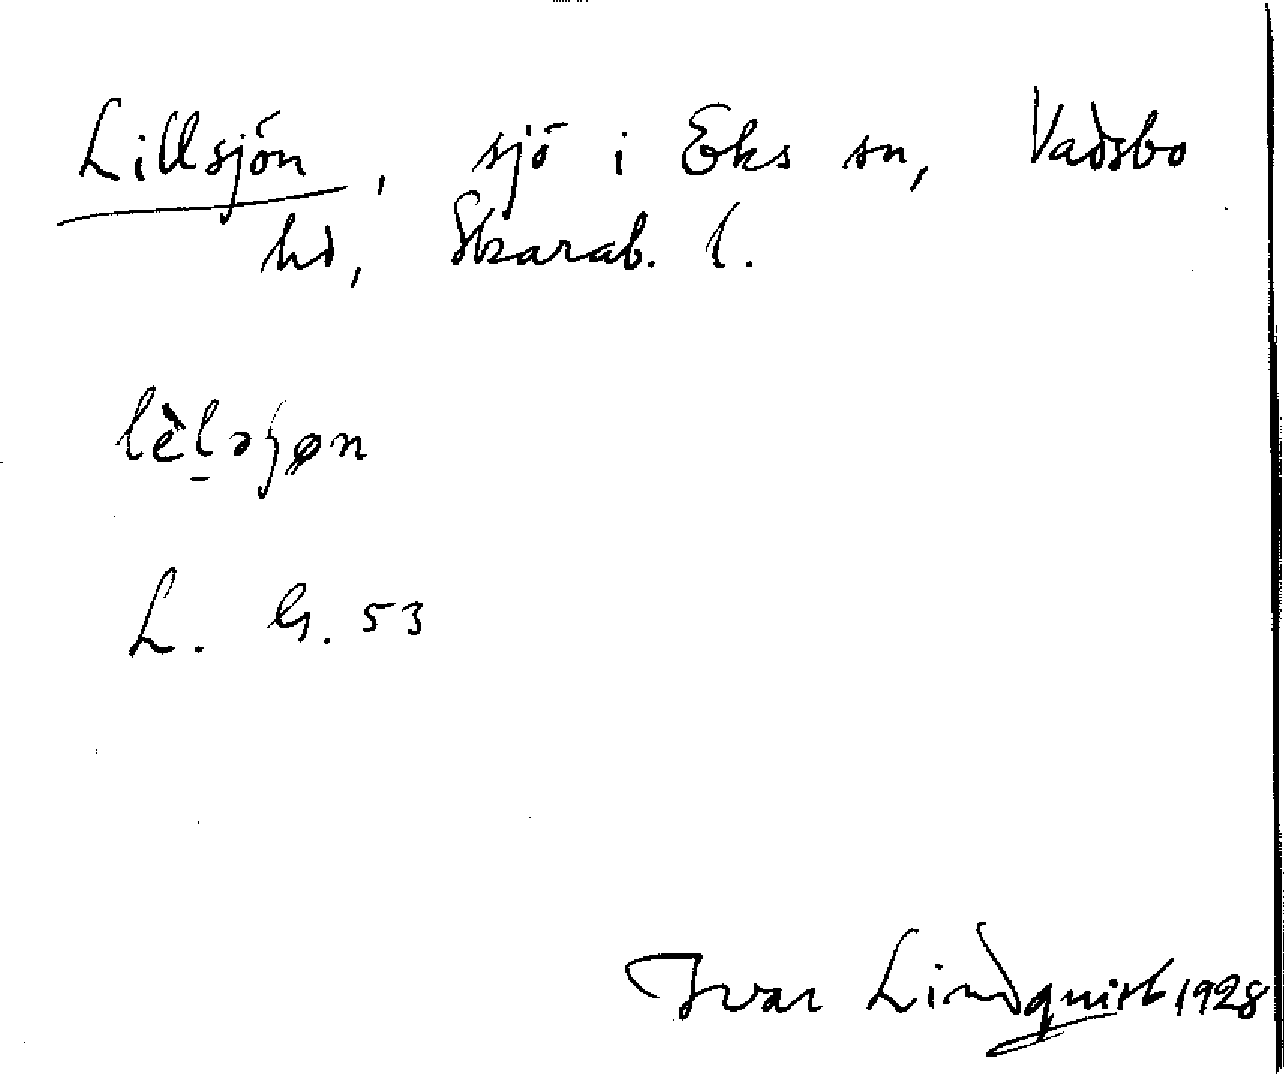 Lillsjön, sjö i Eks sn, Vadsbo
hd, Skarab. l.
L. G. 53
Ivar Lindquist 1928